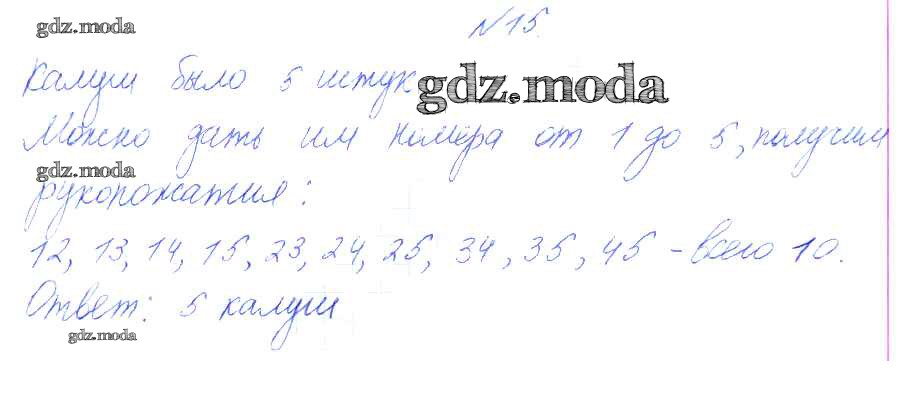 gdz.moda
№15.
Калуш было 5 штук
gdz.moda
Можно дать им номера от 1 до 5, получим
gdz.moda
рукопожатия:
12, 13, 14, 15, 23, 24, 25, 34, 35, 45 - всего 10.
Ответ: 5 калуш
gdz.moda